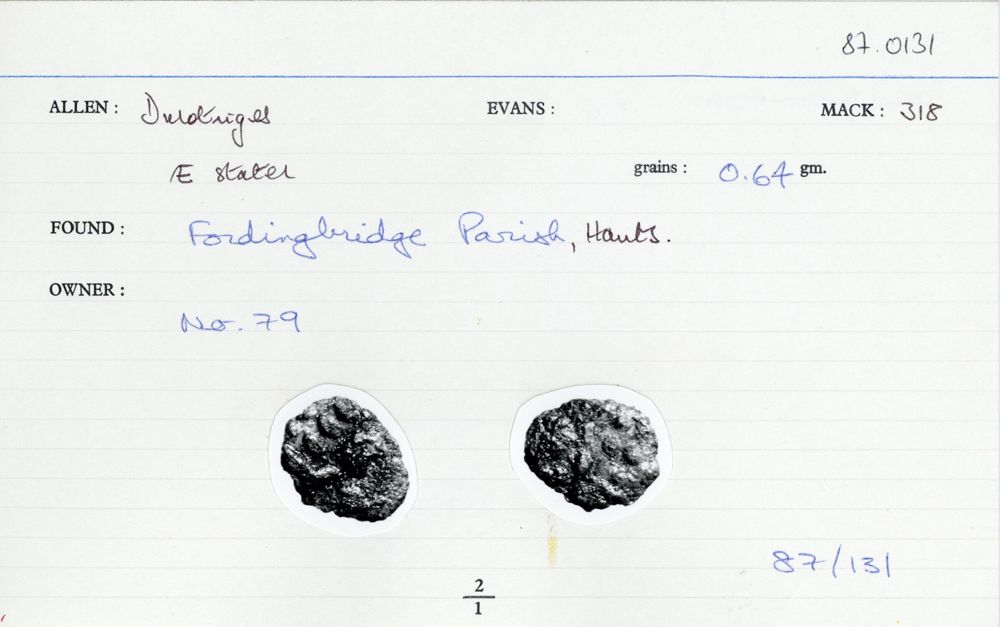 87.0131
ALLEN : Durotriges EVANS : MACK : 318
Æ stater grains : 0.64 gm.
FOUND : Fordingbridge Parish, Hants.
OWNER :
No. 79
87/131
2
1